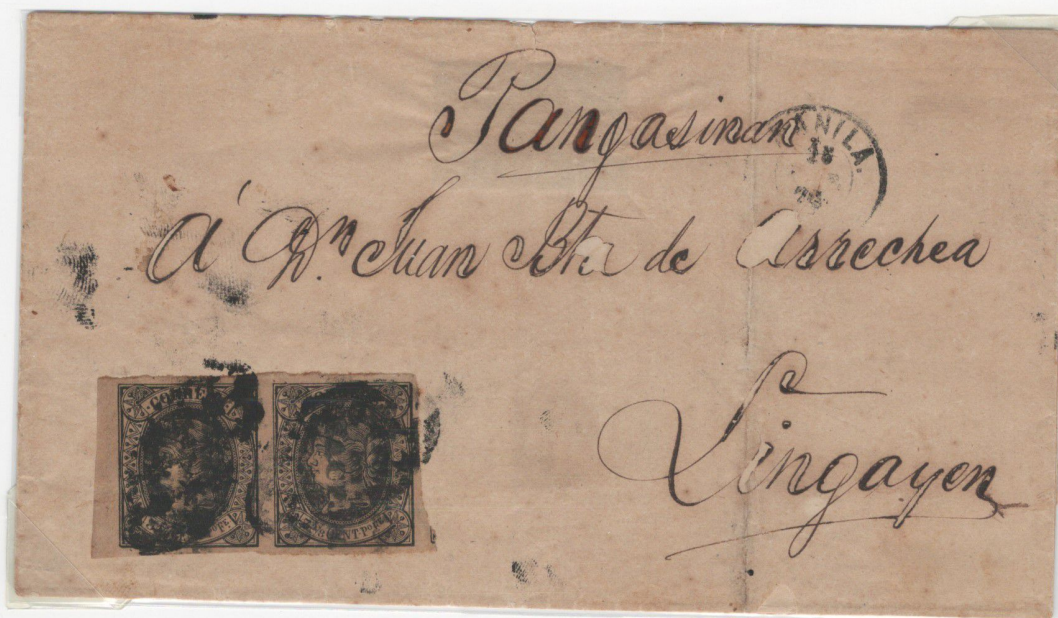 Pangasinan
MANILA.
18
Á Dn. Juan Bta de Arrechea
Lingayen
CORREOS
CENT PO FE